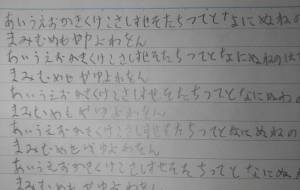 あいうえおかきくけこさしすせそたちつてとなにぬねの
まみむめもやゆよわをん
あいうえおかきくけこさしすせそたちつてとなにぬねのは
まみむめもやゆよわをん
あいうえおかきくけこさしすせそたちつてとなにぬねの
まみむめもやゆよわをん
あいうえおかきくけこさしすせそたちつてとなにぬねの
まみむめもやゆよわをん
あいうえおかきくけこさしすせそたちつてとなにぬね
まみむめもやゆよわをん